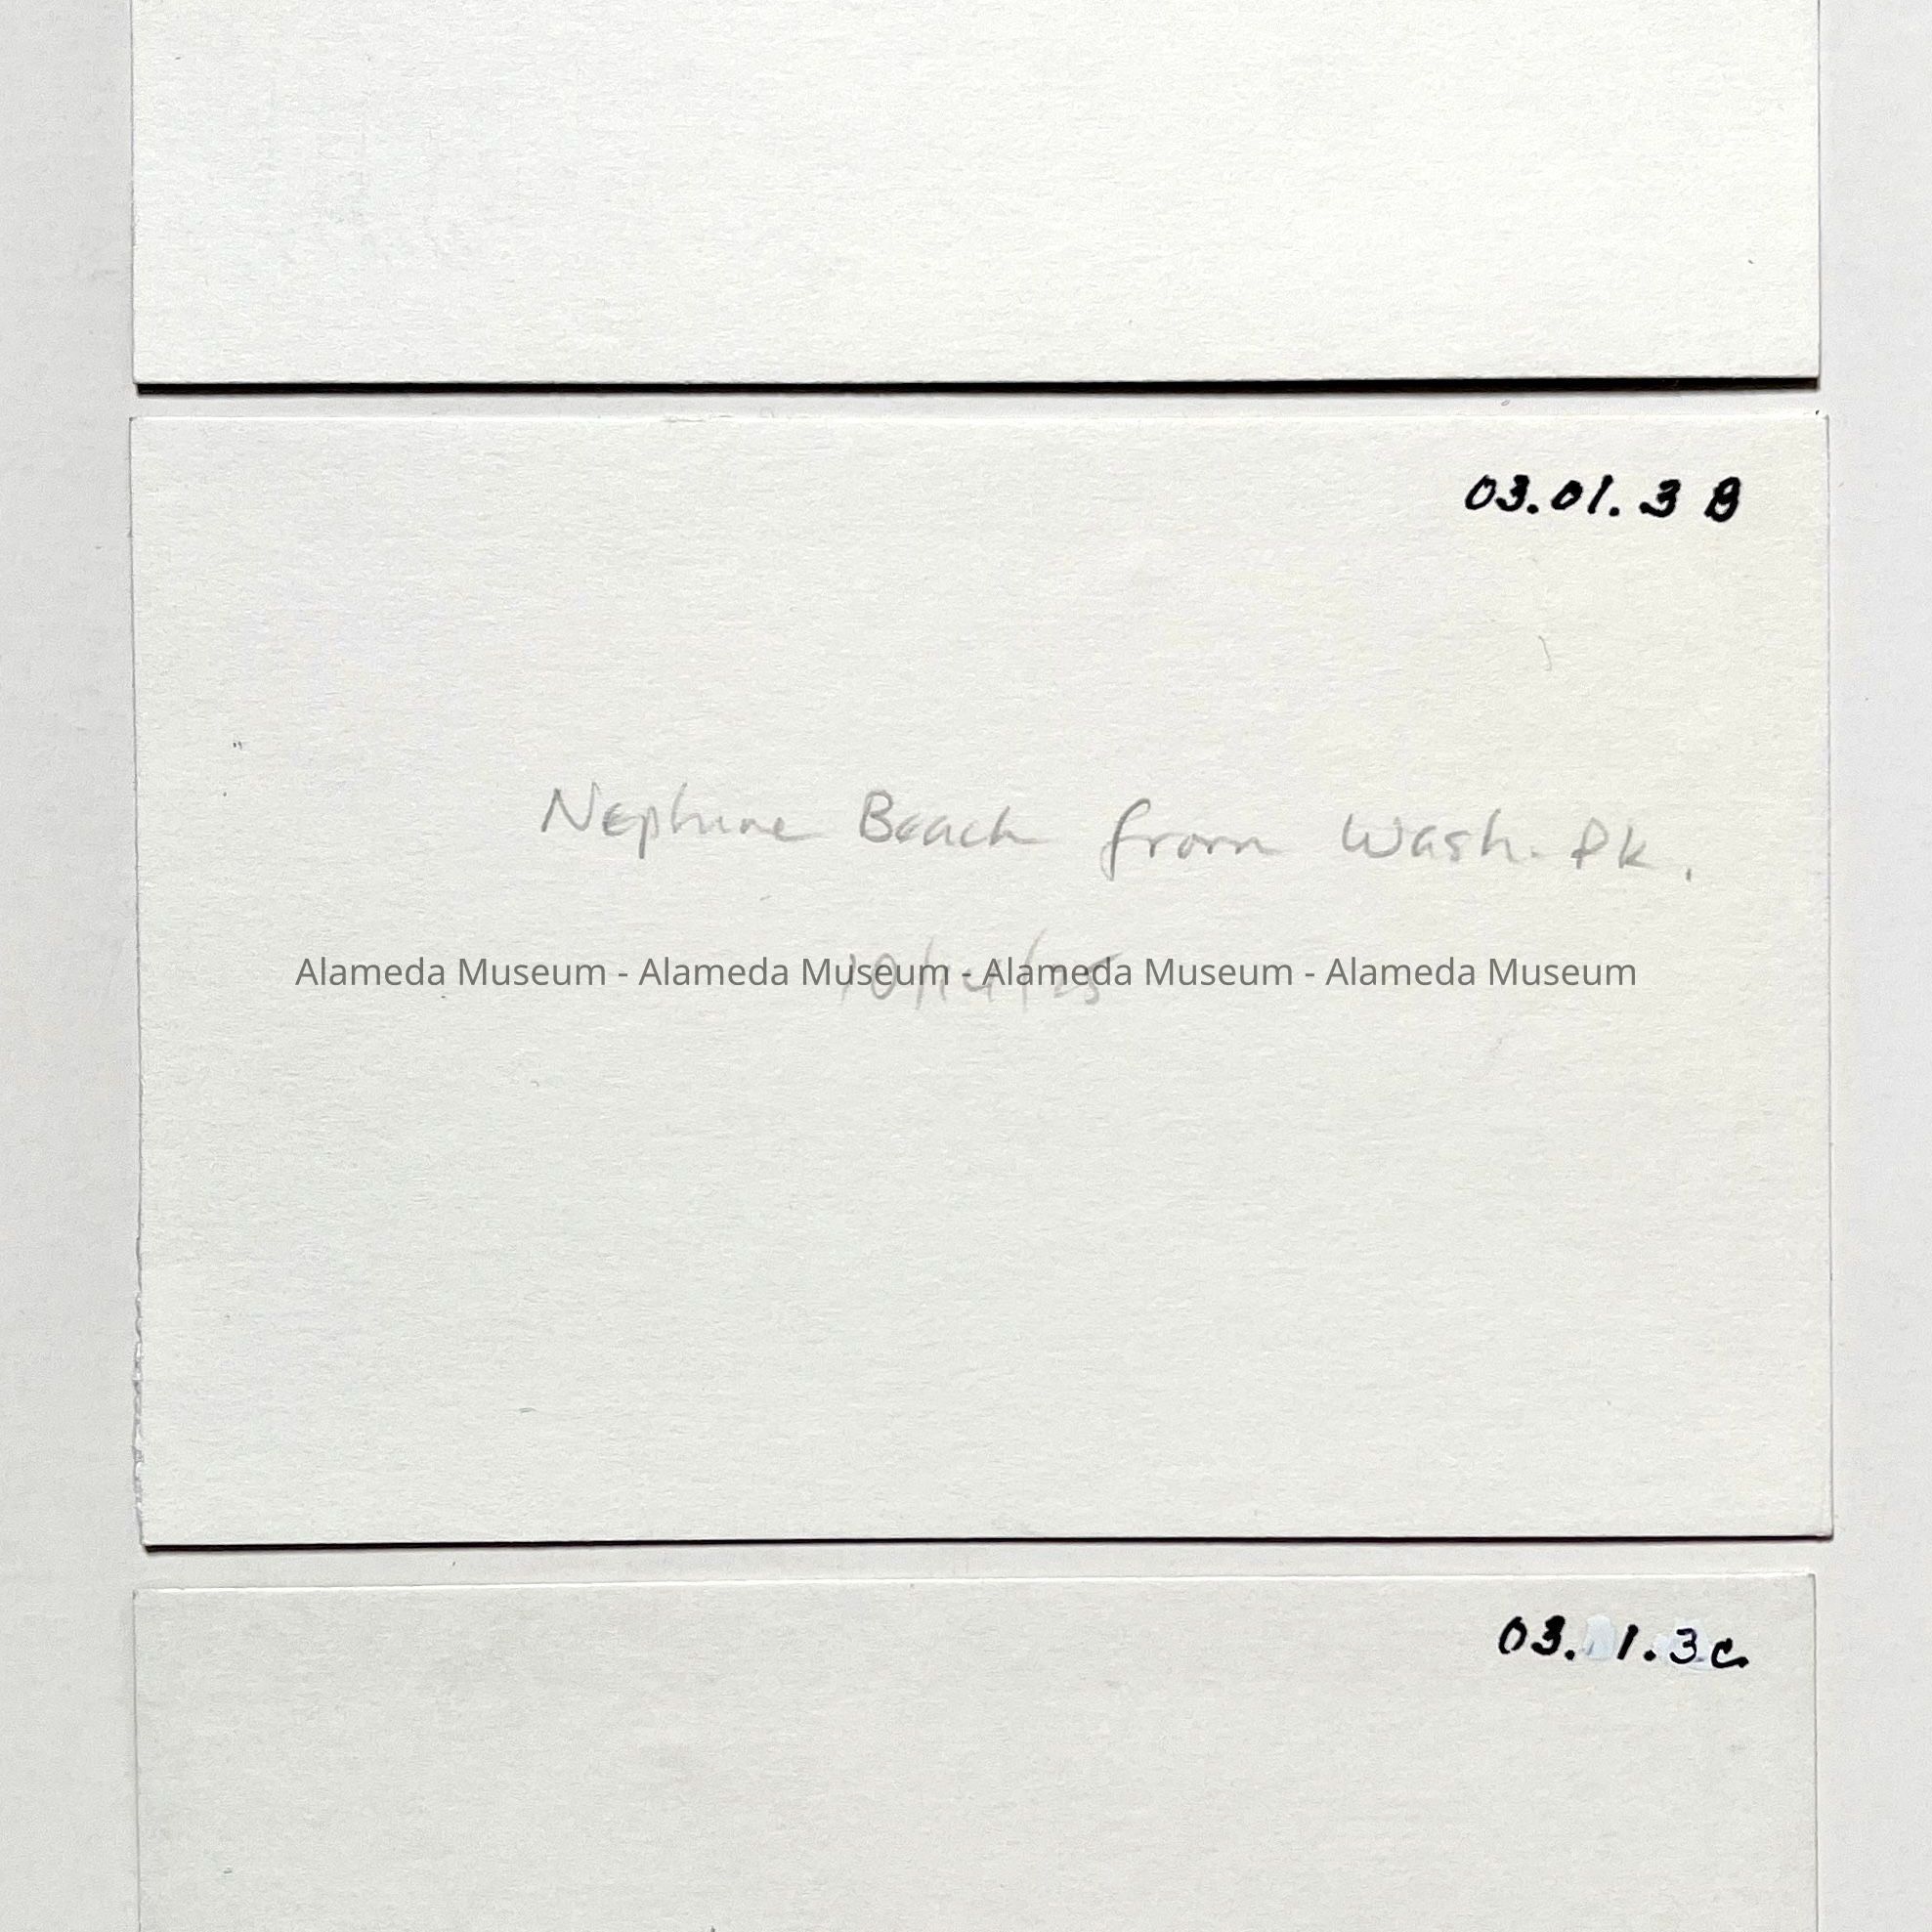 03.01.3 B
Neptune Beach from Wash. Pk.
Alameda Museum - Alameda Museum - Alameda Museum - Alameda Museum
03. 1.3c